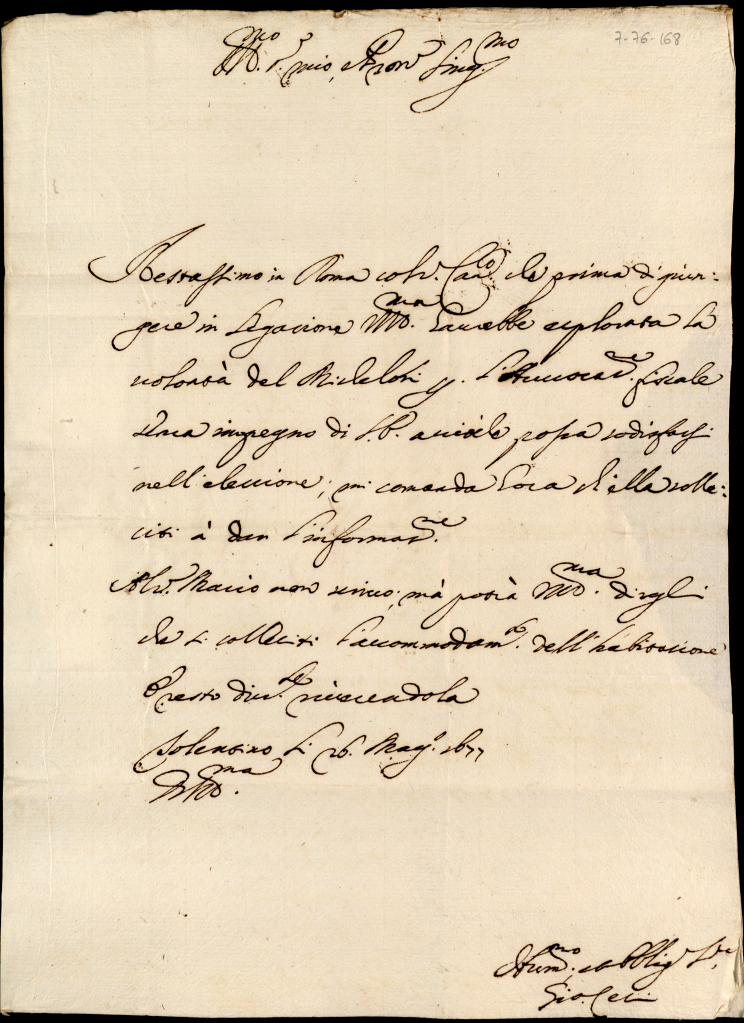 7-76-168
Ill.mo S.r mio, e Pron Sing.mo
Restassimo in Roma col S.r Card. che prima di giun:
gere in Legazione V.S. Ill.ma haurebbe esplorata la
uolontà del Michelori p. l'Auuocat.ne fiscale
senza impegno di S.E. acciò le possa sodisfarsi
nell'elezzione; mi comanda hora ch'ella solle:
citi à dar l'informaz.ne
Al S.r Mario non scriuo; mà potrà V.S. Ill.ma dirgli
che si solleciti l'accommodam.to dell'habitazione
E resto diu.te riuerendola
Tolentino li 26. Mag.o 1677
D V.S. Ill.ma
Hum.mo, et obblig S.re
Gio. Ceci